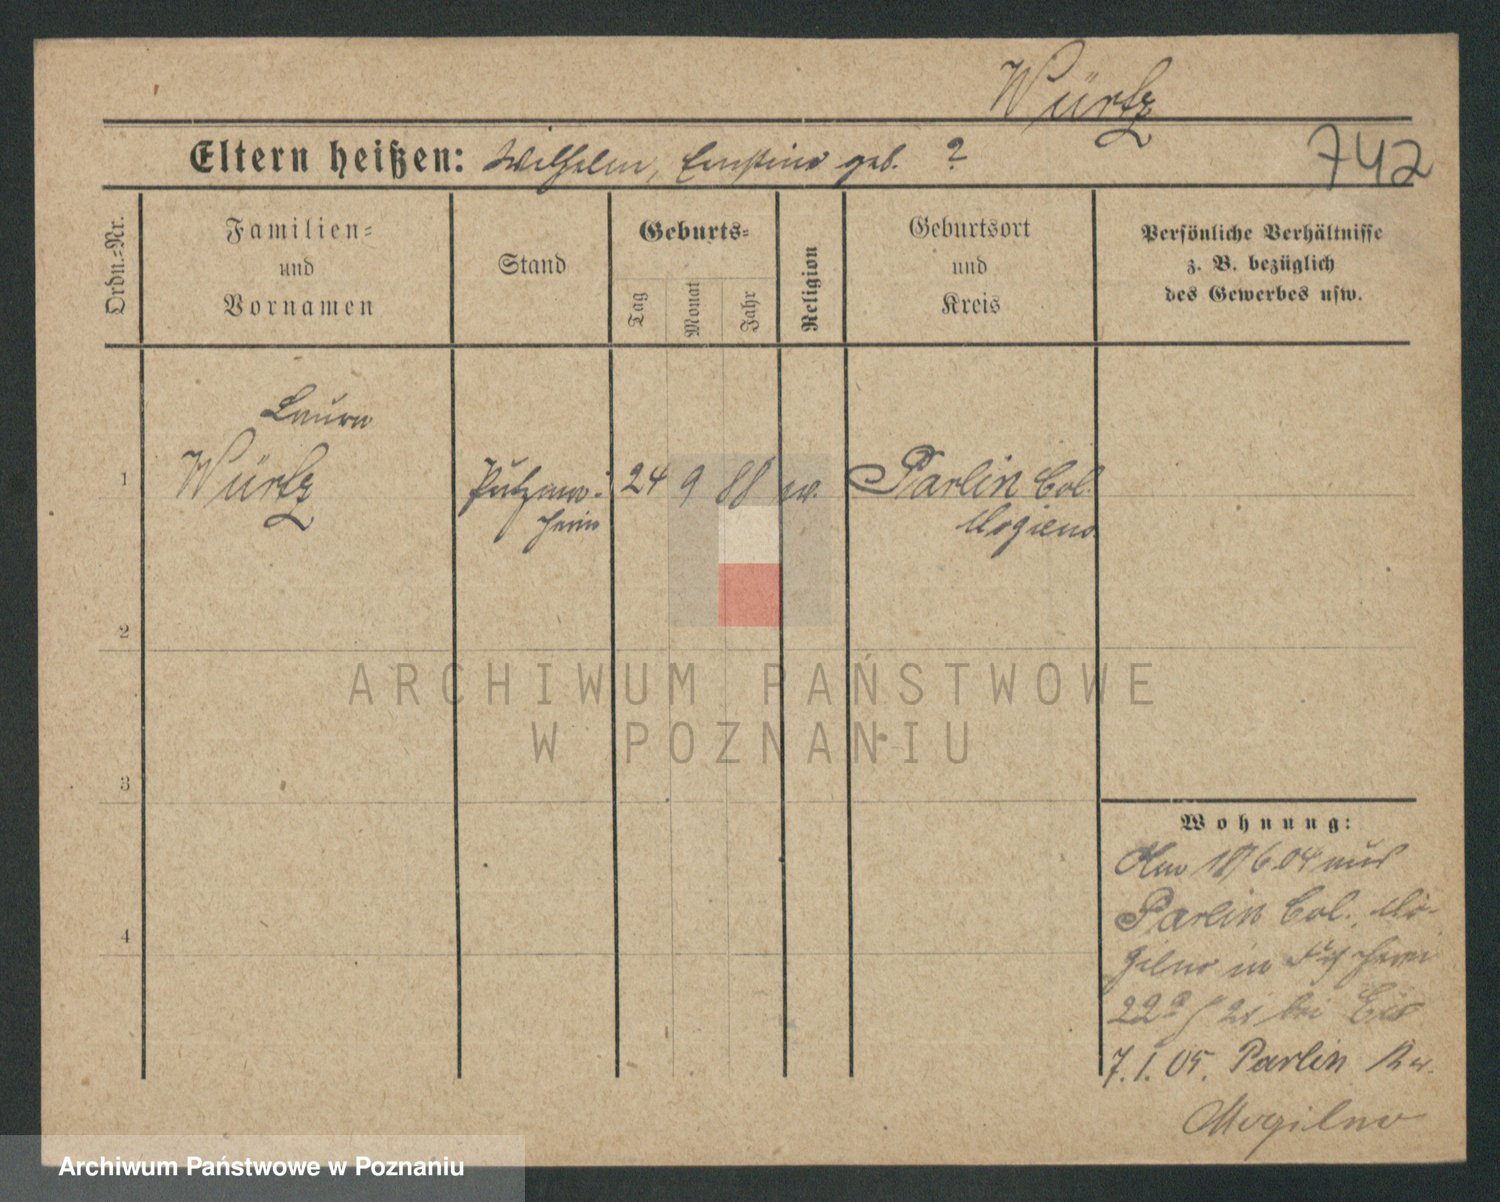 Würtz
Eltern heißen: Wilhelm, Ernstine geb. ?
742
Ordn.-Nr.
Familien-
und
Vornamen
Stand
Geburts-
Tag
Monat
Jahr
Religion
Geburtsort
und
Kreis
Persönliche Verhältnisse
z. B. bezüglich
des Gewerbes usw.
Laura
1 Würtz Putzma- 24 9 88 ev. Parlin Col.
cherin Mogilno
2
3
4
ARCHIWUM PAŃSTWOWE
W POZNANIU
Wohnung:
Am 18/6.04 aus
Parlin Col. Mo-
gilno in
22a bei
7.1.05. Parlin Kr.
Mogilno
Archiwum Państwowe w Poznaniu